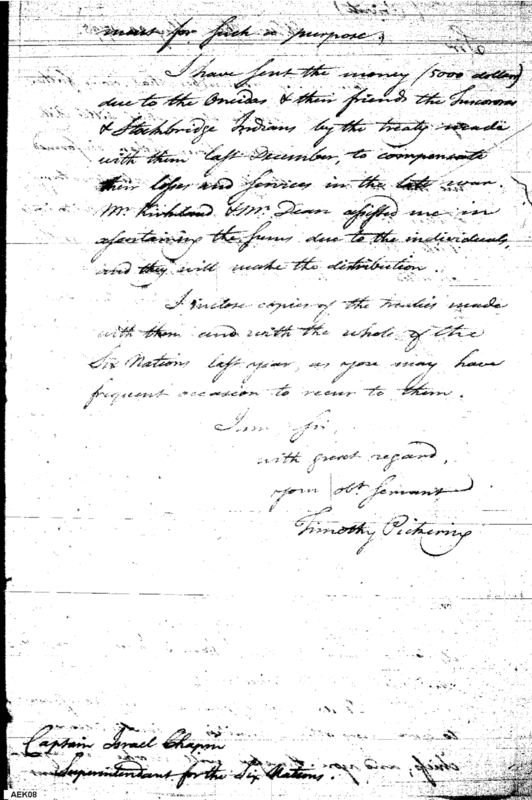 must for such a purpose.
I have sent the money (5000 dollars)
due to the Oneidas & their friends the Tuscororas
& Stockbridge Indians by the treaty made
with them last December, to compensate
their losses and services in the late war.
Mr. Kirkland & Mr. Dean assisted me in
ascertaining the sums due to the individuals,
and they will make the distribution.
I inclose copies of the treaties made
with them and with the whole of the
Six Nations last year, as you may have
frequent occasion to recur to them.
I am Sir,
with great regard,
your obt. servant
Timothy Pickering
Captain Israel Chapin
Superintendant for the Six Nations.
AEK08